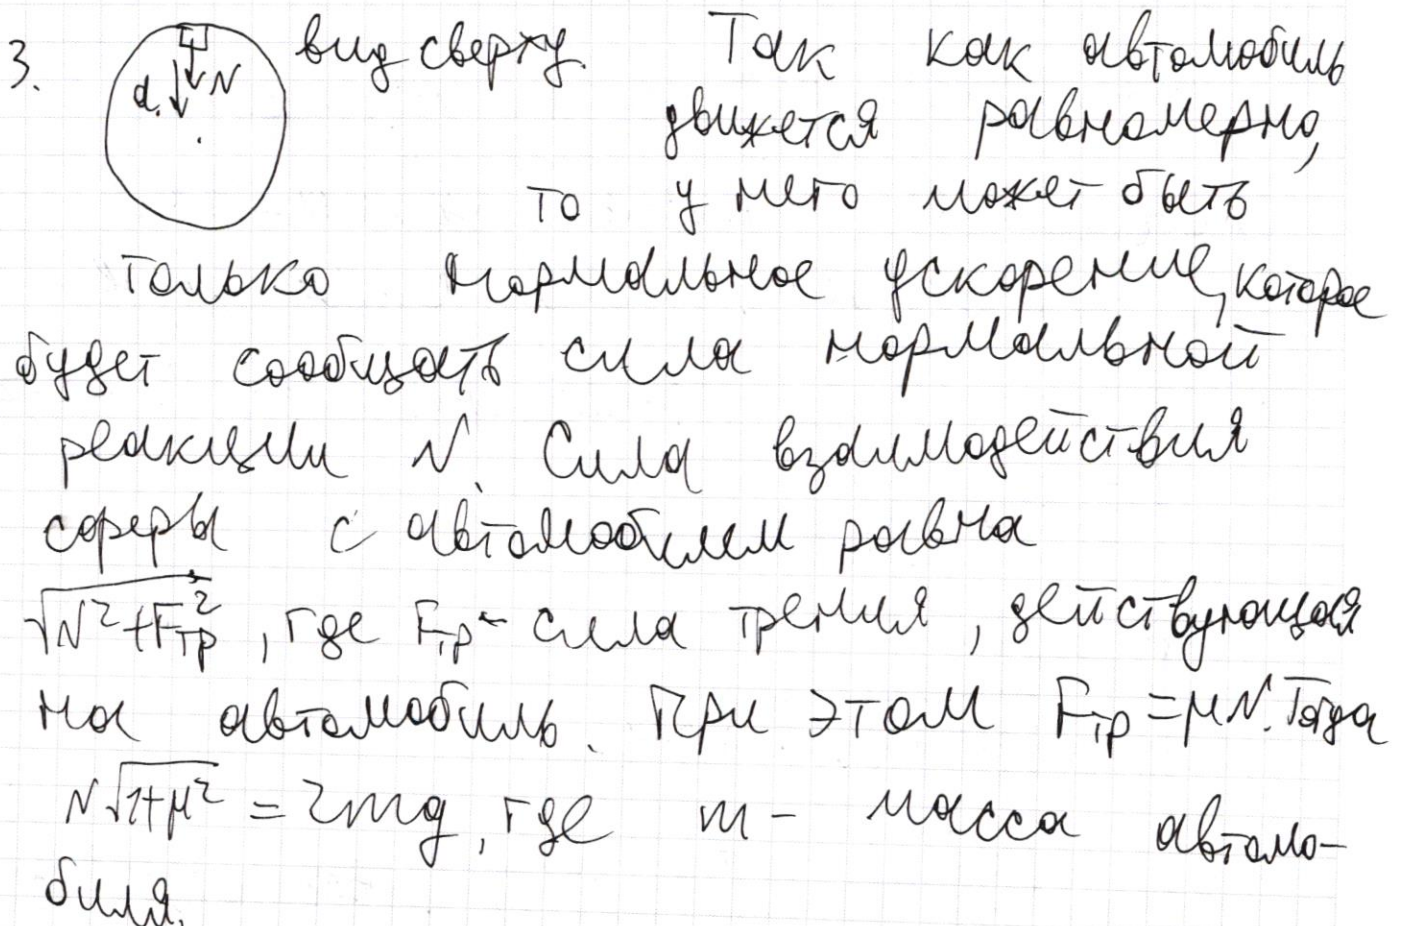 3. вид сверху. Так как автомобиль
a N
движется равномерно,
то у него может быть
только нормальное ускорение, которое
будет сообщать сила нормальной
реакции N. Сила взаимодействия
сферы с автомобилем равна
√(N²+Fтр²), где Fтр - сила трения, действующая
на автомобиль. При этом Fтр = μN. Тогда
N√(1+μ²) = 2mg, где m - масса автомо-
биля.